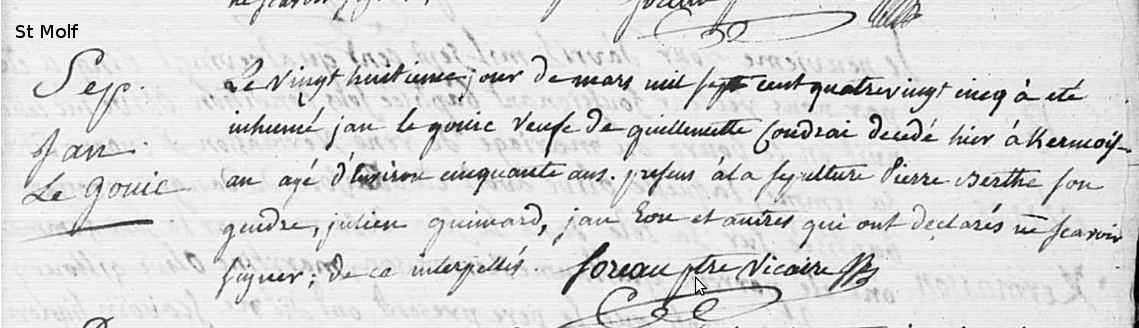 St Molf
ne scavoir
Sep.
jan
Le gouic
Le vingt huitieme jour de mars mil sept cent quatrevingt cinq à eté
inhumé jan le gouic veufe de guillemette Coudrai decedé hier à Kermois-
an agé d'Environ cinquante ans. presens à la sepulture Pierre Berthe son
gendre, julien guimard, jan Eon et autres qui ont declarés ne scavoir
signer; de ce interpellés. soreau ptre Vicaire